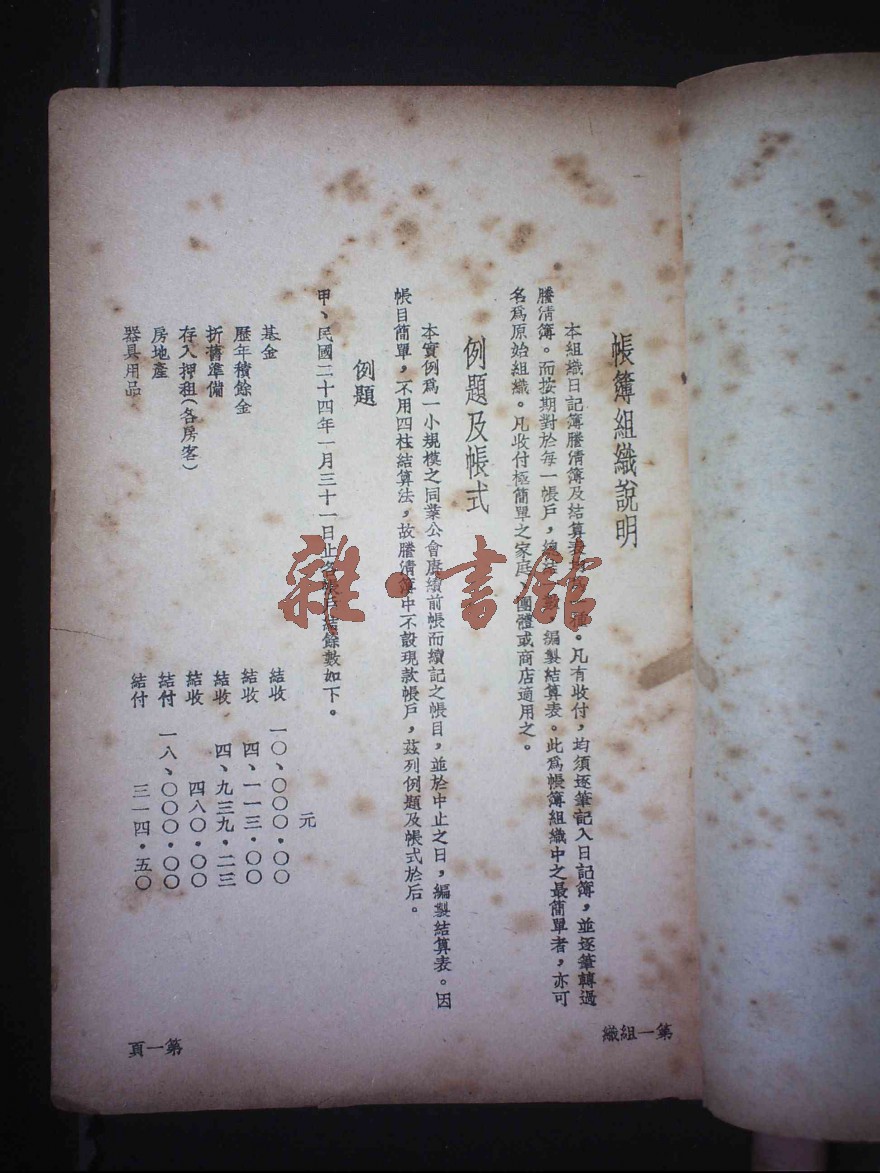 帳簿組織說明
本組織日記簿謄清簿及結算表　　。凡有收付，均須逐筆記入日記簿，並逐筆轉過
謄清簿。而按期對於每一帳戶，總　　編製結算表。此爲帳簿組織中之最簡單者，亦可
名爲原始組織。凡收付極簡單之家庭、團體或商店適用之。
例題及帳式
本實例爲一小規模之同業公會賡續前帳而續記之帳目，並於中止之日，編製結算表。因
帳目簡單，不用四柱結算法，故謄清簿中不設現款帳戶，茲列例題及帳式於后。
例題
甲、民國二十四年一月三十一日止各帳戶結餘數如下。
元
基金　結收　一〇、〇〇〇・〇〇
歷年積餘金　結收　四、一一三・〇〇
折舊準備　結收　四、九三九・二三
存入押租（各房客）　結收　四八〇・〇〇
房地產　結付　一八、〇〇〇・〇〇
器具用品　結付　三一四・五〇
第一組織
第一頁
雜・書館